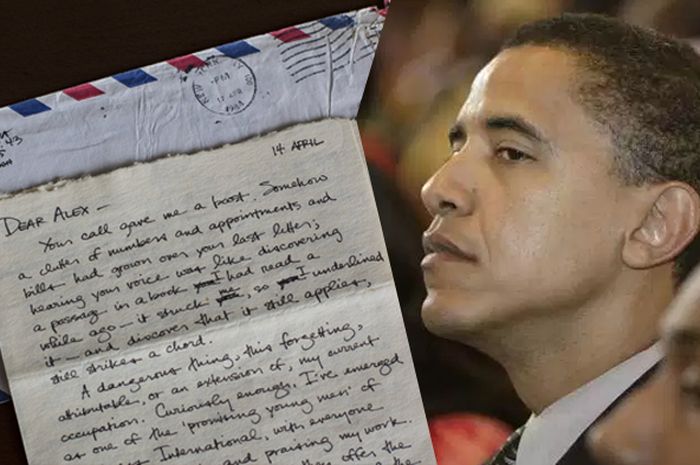 NEW YORK
PM
APR
1984
43
14 APRIL
DEAR ALEX —
Your call gave me a boost. Somehow
a clutter of numbers and appointments and
bills had grown over your last letter;
hearing your voice was like discovering
a passage in a book you I had read a
while ago — it struck me, so I underlined
it — and discover that it still applies,
still strikes a chord.
A dangerous thing, this forgetting,
attributable, or an extension of, my current
occupation. Curiously enough, I've emerged
as one of the 'promising young men' of
International, with everyone
and praising my work.
they offer the
the